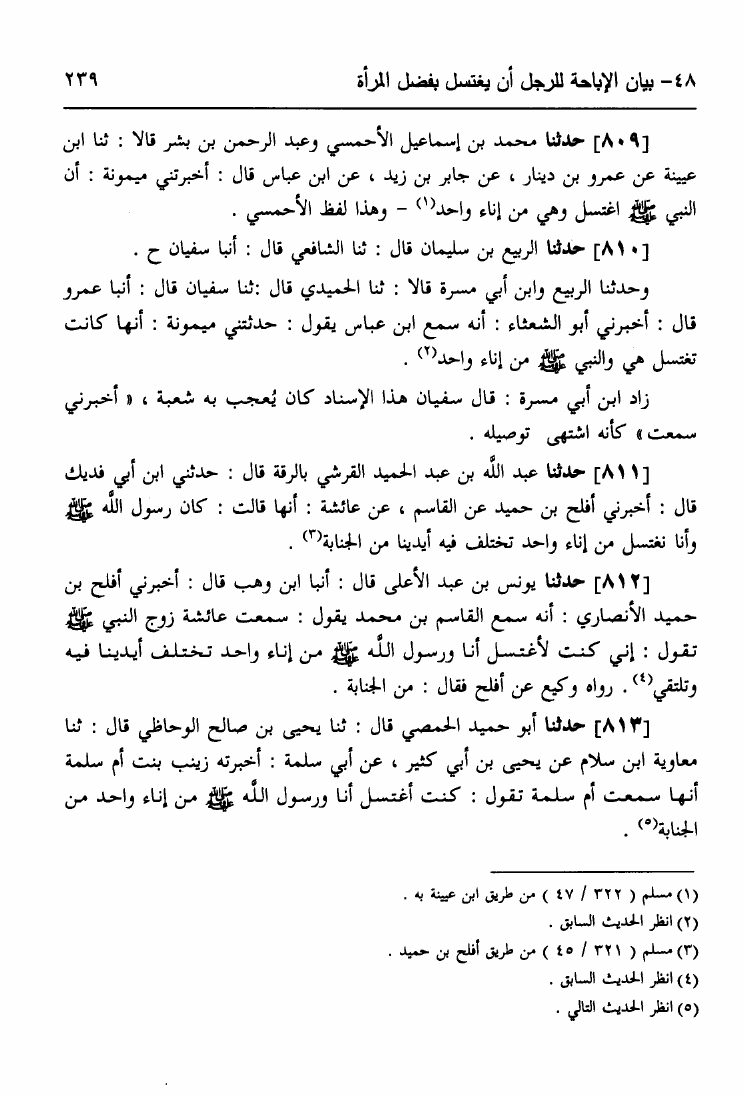 ٤٨- بيان الإباحة للرجل أن يغتسل بفضل المرأة ٢٣٩
[٨٠٩] حدثنا محمد بن إسماعيل الأحمسي وعبد الرحمن بن بشر قالا : ثنا ابن
عيينة عن عمرو بن دينار ، عن جابر بن زيد ، عن ابن عباس قال : أخبرتني ميمونة : أن
النبي ﷺ اغتسل وهي من إناء واحد(١) – وهذا لفظ الأحمسي .
[٨١٠] حدثنا الربيع بن سليمان قال : ثنا الشافعي قال : أنبا سفيان ح .
وحدثنا الربيع وابن أبي مسرة قالا : ثنا الحميدي قال :ثنا سفيان قال : أنبا عمرو
قال : أخبرني أبو الشعثاء : أنه سمع ابن عباس يقول : حدثتني ميمونة : أنها كانت
تغتسل هي والنبي ﷺ من إناء واحد(٢) .
زاد ابن أبي مسرة : قال سفيان هذا الإسناد كان يُعجب به شعبة ، « أخبرني
سمعت » كأنه اشتهى توصيله .
[٨١١] حدثنا عبد اللَّه بن عبد الحميد القرشي بالرقة قال : حدثني ابن أبي فديك
قال : أخبرني أفلح بن حميد عن القاسم ، عن عائشة : أنها قالت : كان رسول اللَّه ﷺ
وأنا نغتسل من إناء واحد تختلف فيه أيدينا من الجنابة(٣) .
[٨١٢] حدثنا يونس بن عبد الأعلى قال : أنبا ابن وهب قال : أخبرني أفلح بن
حميد الأنصاري : أنه سمع القاسم بن محمد يقول : سمعت عائشة زوج النبي ﷺ
تقول : إني كنت لأغتسل أنا ورسول اللَّه ﷺ من إناء واحد تختلف أيدينا فيه
وتلتقي(٤) . رواه وكيع عن أفلح فقال : من الجنابة .
[٨١٣] حدثنا أبو حميد الحمصي قال : ثنا يحيى بن صالح الوحاظي قال : ثنا
معاوية ابن سلام عن يحيى بن أبي كثير ، عن أبي سلمة : أخبرته زينب بنت أم سلمة
أنها سمعت أم سلمة تقول : كنت أغتسل أنا ورسول اللَّه ﷺ من إناء واحد من
الجنابة(٥) .
(١) مسلم ( ٣٢٢ / ٤٧ ) من طريق ابن عيينة به .
(٢) انظر الحديث السابق .
(٣) مسلم ( ٣٢١ / ٤٥ ) من طريق أفلح بن حميد .
(٤) انظر الحديث السابق .
(٥) انظر الحديث التالي .